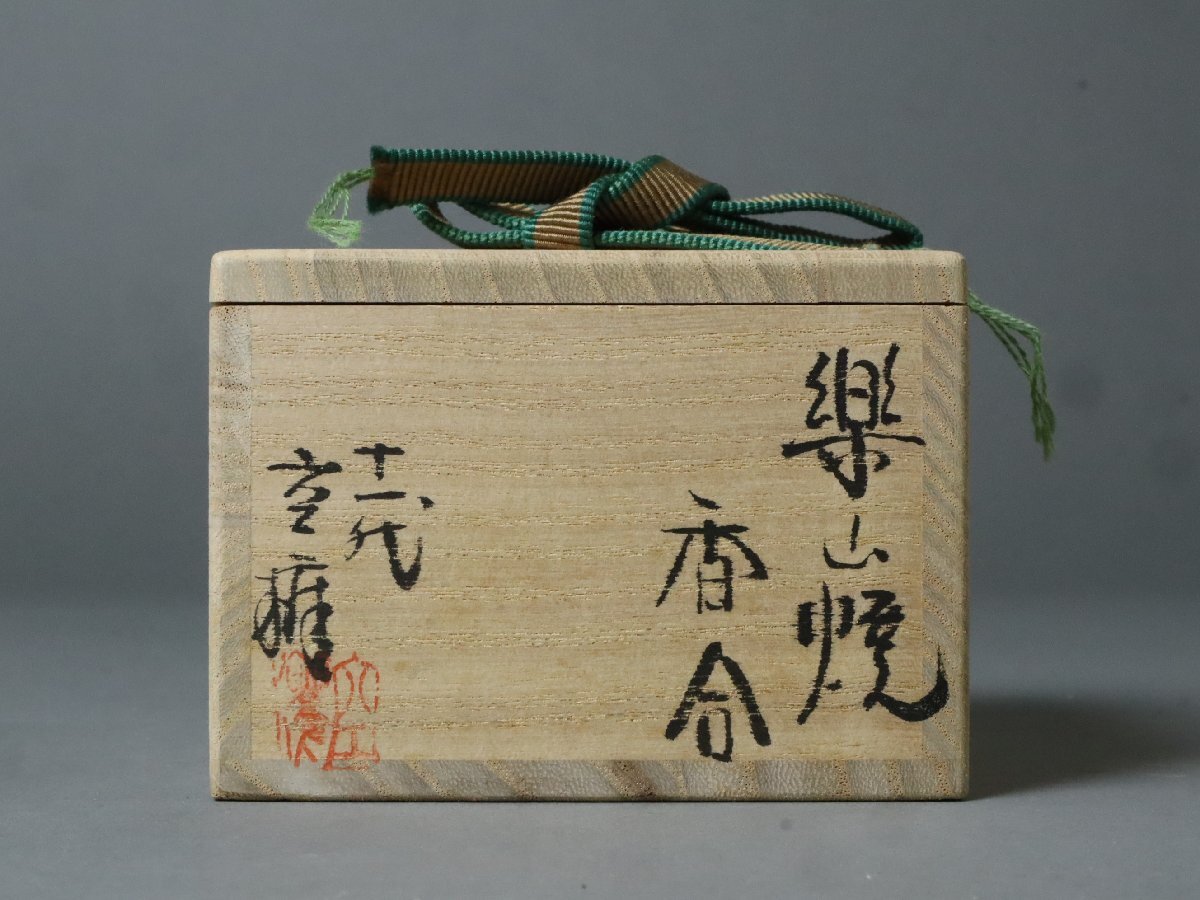 樂山焼
香合
十一代
空権